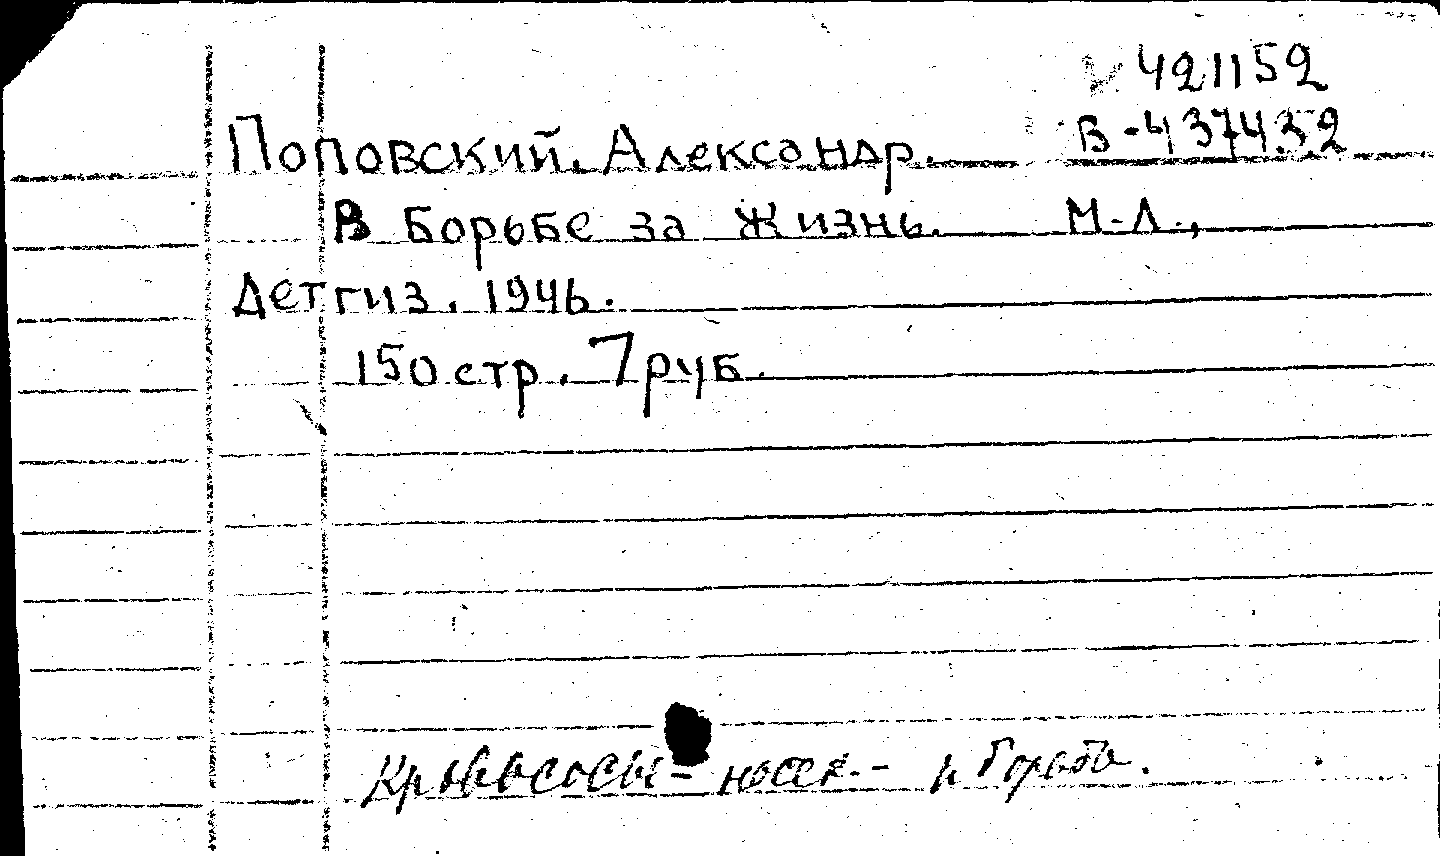 421152
В-437432
Поповский. Александр.
В борьбе за жизнь. М-Л.,
Детгиз. 1946.
150 стр. 7 руб.
Кровососы -